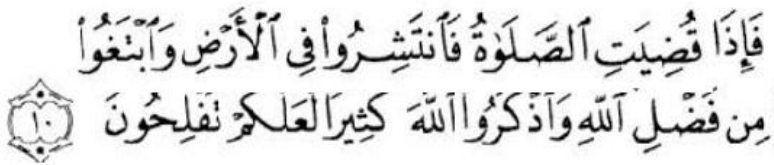 فَإِذَا قُضِيَتِ ٱلصَّلَوٰةُ فَٱنتَشِرُوا۟ فِى ٱلْأَرْضِ وَٱبْتَغُوا۟
مِن فَضْلِ ٱللَّهِ وَٱذْكُرُوا۟ ٱللَّهَ كَثِيرًا لَّعَلَّكُمْ تُفْلِحُونَ ١٠